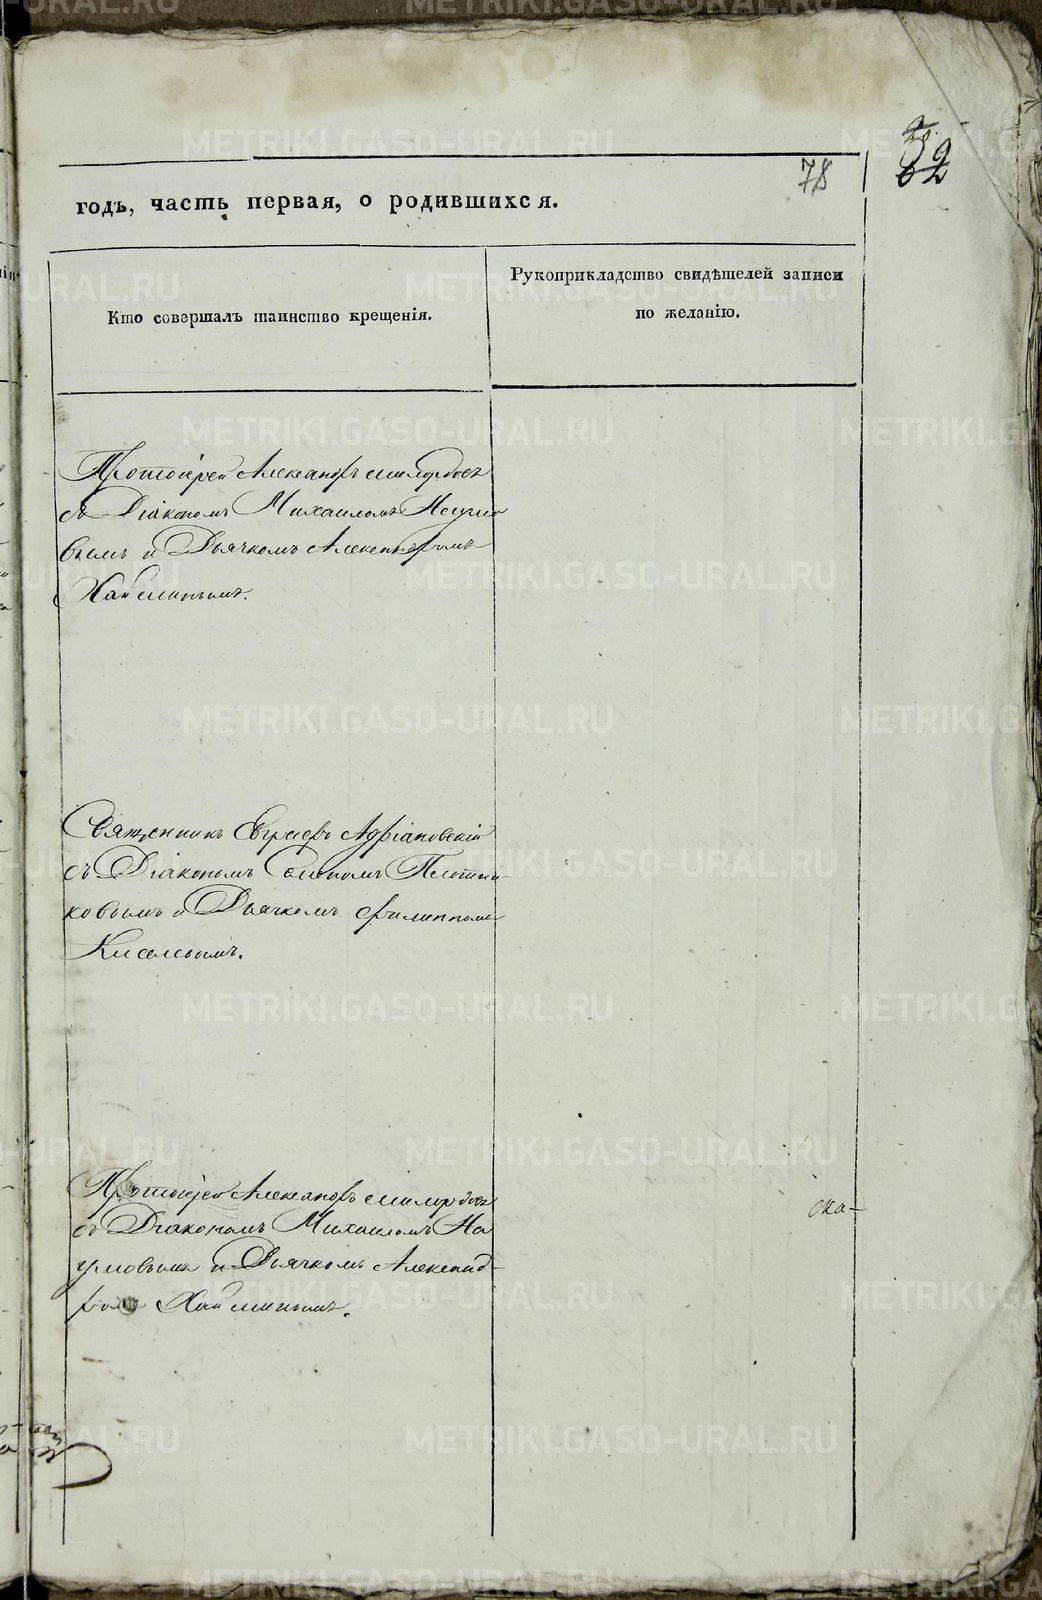 78
32
годъ, часть первая, о родившихся.
Кто совершалъ таинство крещенія.
Рукоприкладство свидѣтелей записи
по желанію.
Протоіерей Александръ
съ Діакономъ Михаиломъ Наумо
вымъ и Дьячкомъ Александромъ
Священникъ Адріановскій
съ Діакономъ Плотни-
ковымъ и Дьячкомъ Филиппомъ
Киселевымъ.
Протоіерей Александръ
съ Діакономъ Михаиломъ На
умовымъ и Дьячкомъ Александ-
ромъ
ска-
METRIKI.GASO-URAL.RU